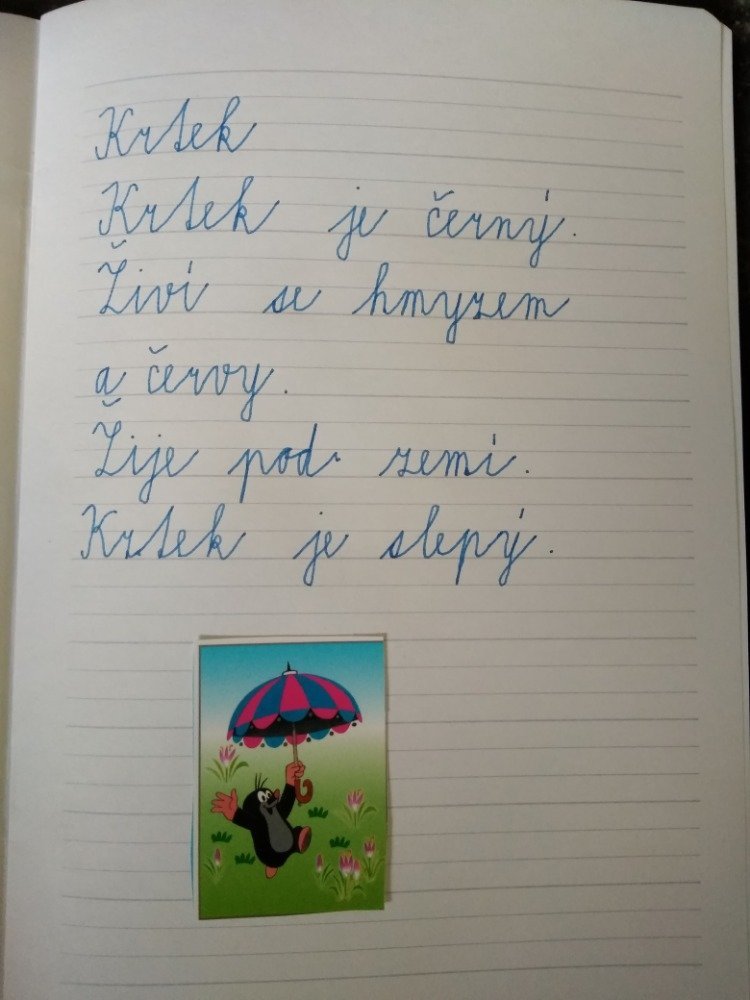 Krtek
Krtek je černý.
Živí se hmyzem
a červy.
Žije pod zemí.
Krtek je slepý.